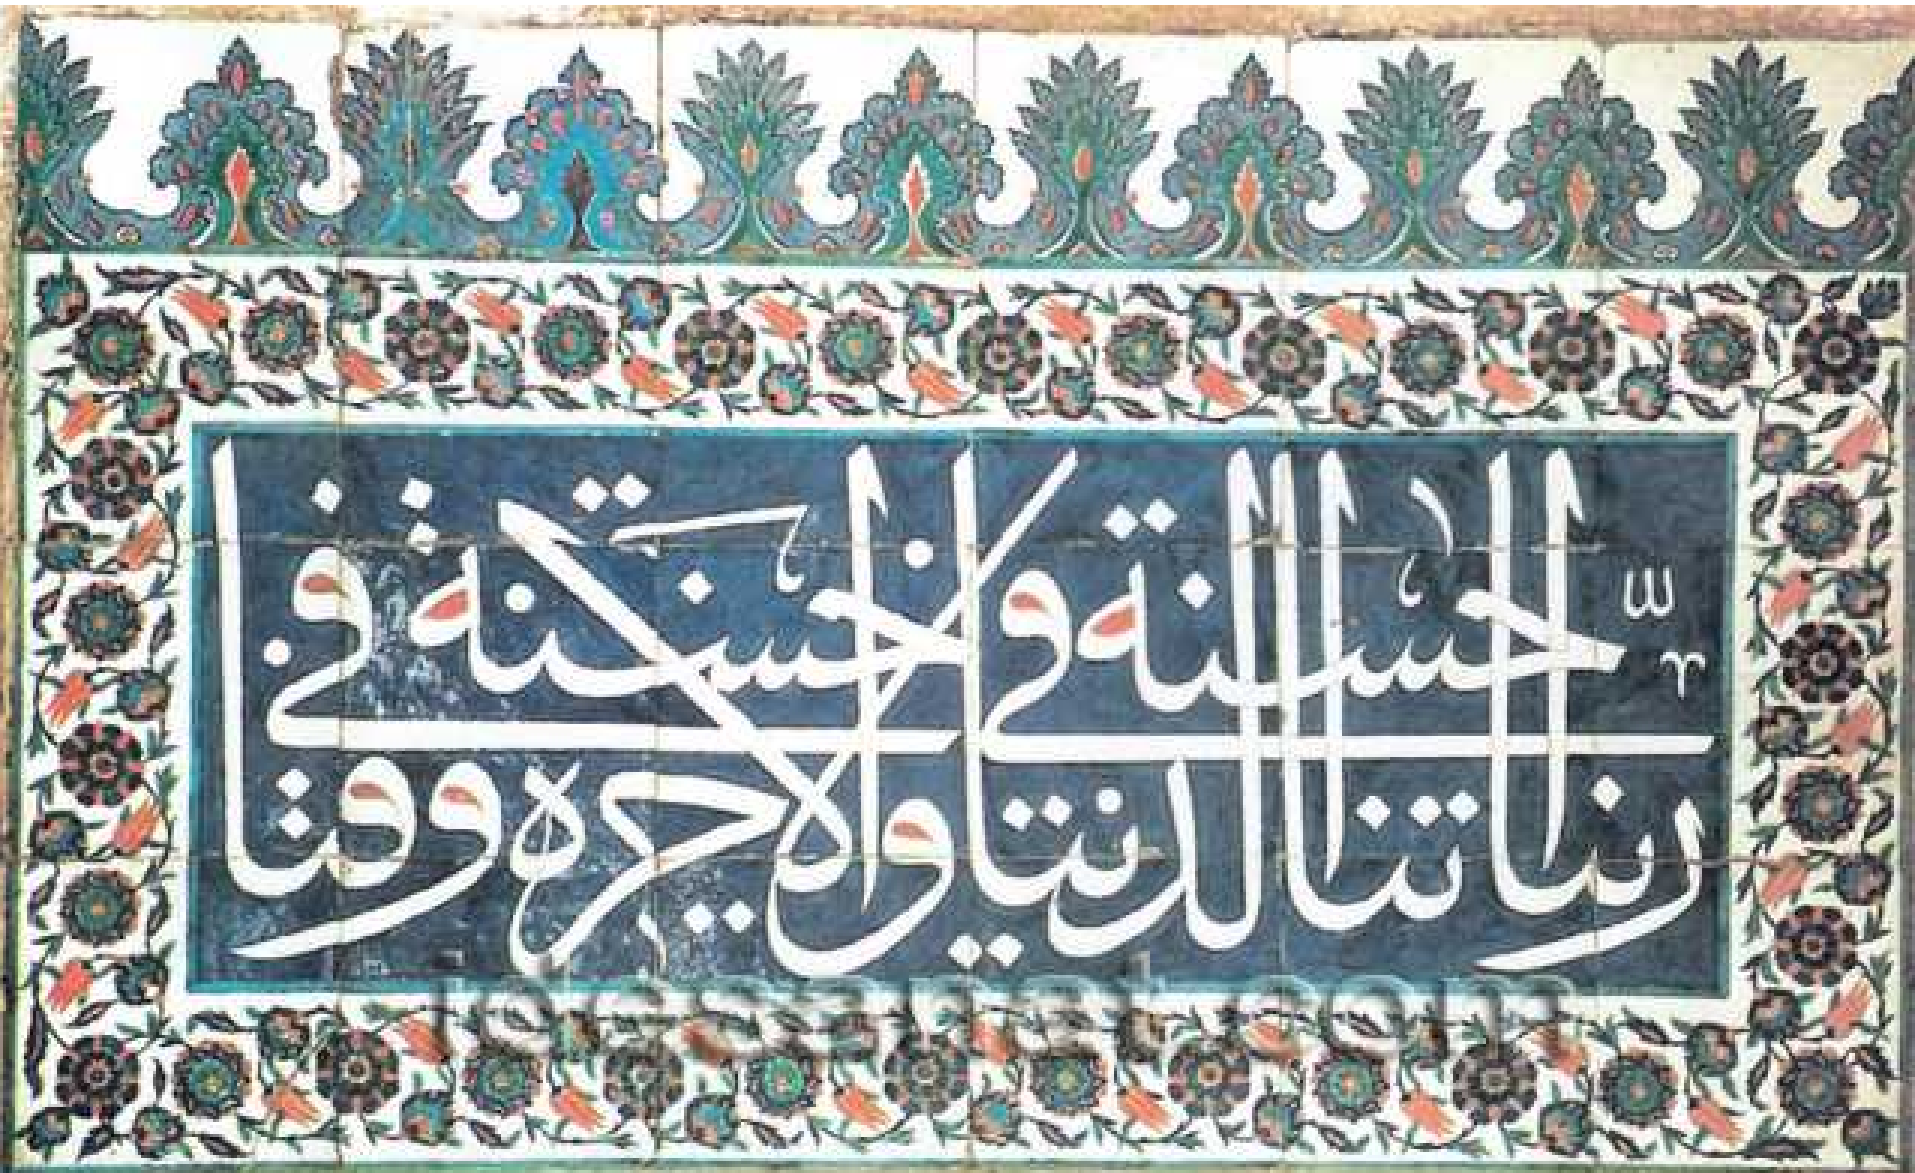 ربنا اتنا فى الدنيا حسنه وفى الاخرة حسنة وقنا